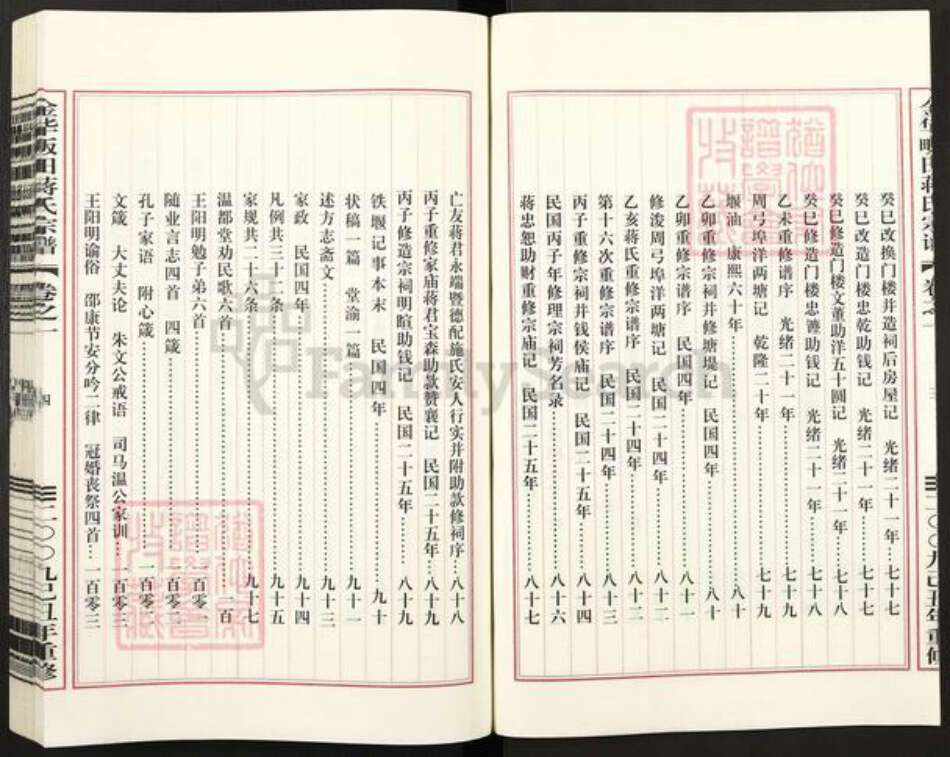 癸巳改换门楼并造祠后房屋记 光绪二十一年……七十七
癸巳改造门楼忠乾助钱记 光绪二十一年……七十七
癸巳修造门楼文董助洋五十圆记 光绪二十一年……七十八
癸巳修造门楼忠镳助钱记 光绪二十一年……七十八
乙未重修谱序 光绪二十一年……七十九
周弓埠洋两塘记 乾隆二十年……七十九
堰油 康熙六十年……八十
乙卯重修宗祠并修塘堤记 民国四年……八十
乙卯重修宗谱序 民国四年……八十一
修浚周弓埠洋两塘记 民国二十四年……八十二
乙亥蒋氏重修宗谱序 民国二十四年……八十二
第十六次重修宗谱序 民国二十四年……八十三
丙子重修宗祠并钱侯庙记 民国二十五年……八十四
民国丙子年修理宗祠芳名录……八十六
蒋忠恕助财重修宗庙记 民国二十五年……八十七
亡友蒋君永端暨德配施氏安人行实并附助款修祠序……八十八
丙子重修家庙蒋君宝森助款赞襄记 民国二十五年……八十九
丙子修造宗祠明暄助钱记 民国二十五年……八十九
铁堰记事本末 民国四年……九十
状稿一篇 堂渝一篇……九十一
述方志斋文……九十三
家政 民国四年……九十四
凡例共三十二条……九十五
家规共二十六条……九十七
温都堂劝民歌六首……一百
王阳明勉子弟六首……一百零一
随业言志四首 四箴……一百零二
孔子家语 附心箴……一百零二
文箴 大丈夫论 朱文公戒语 司马温公家训……一百零三
王阳明谕俗 邵康节安分吟二律 冠婚丧祭四首……一百零三
蒋氏宗谱【卷之一
四
二〇〇九己丑年重修